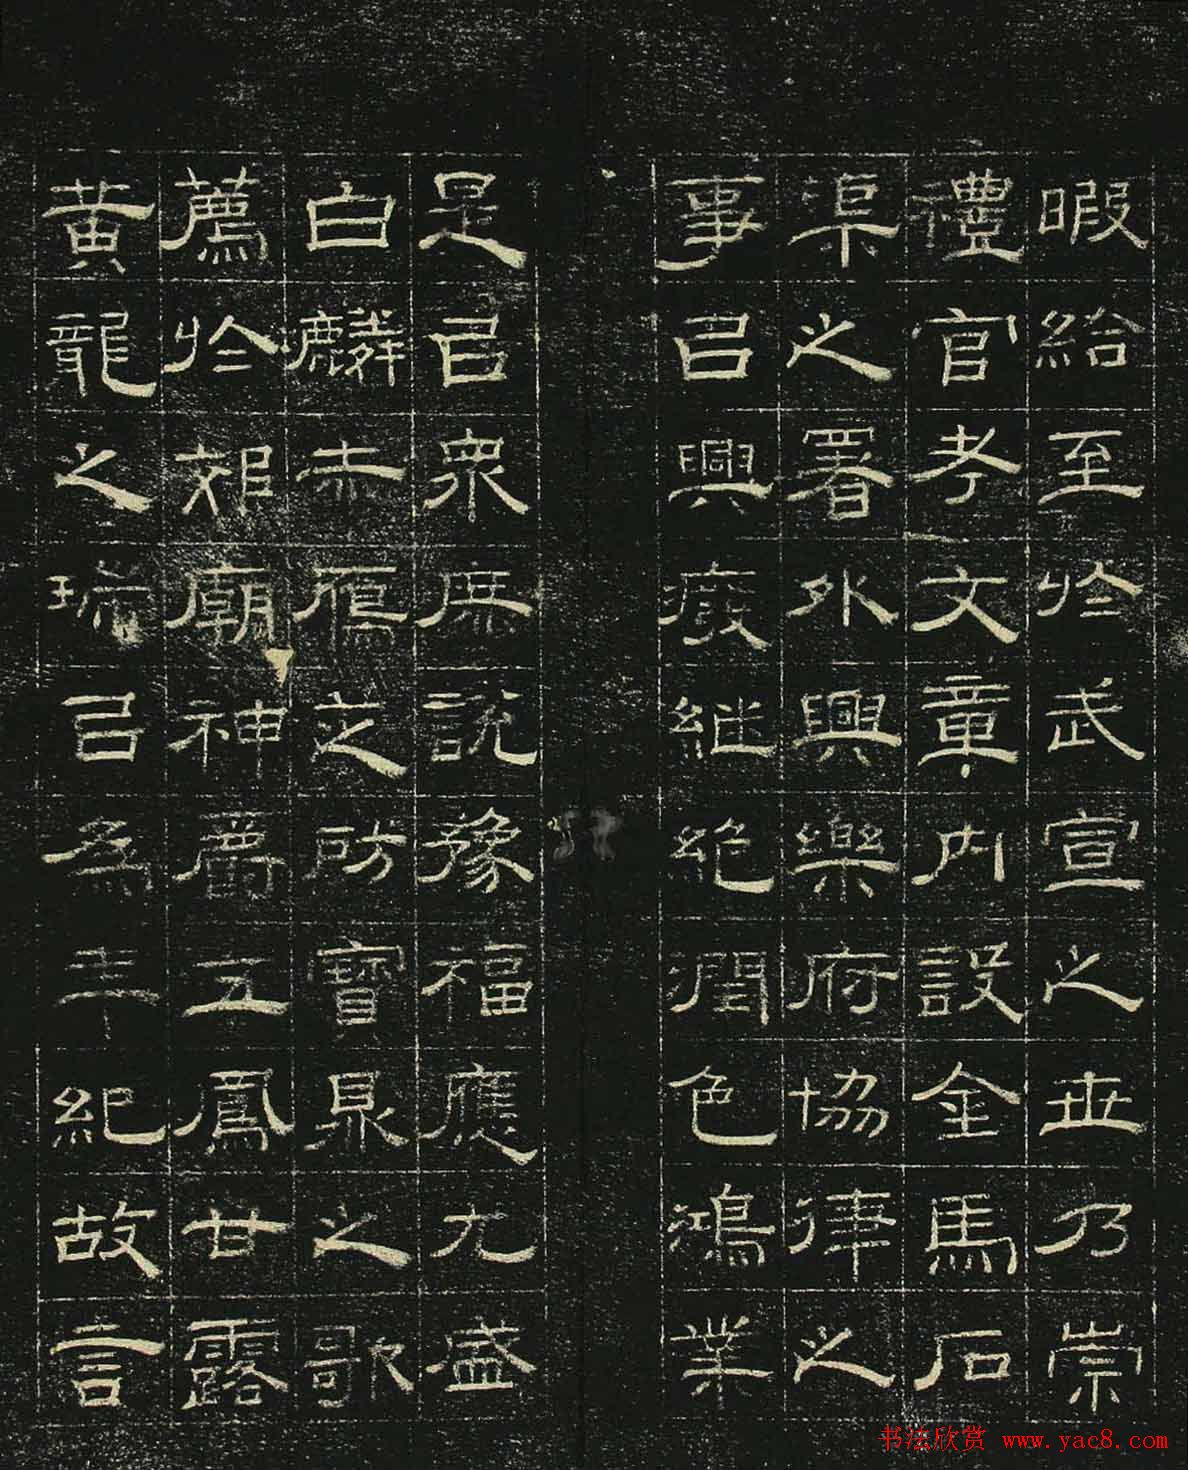 暇給至於武宣之世乃崇
禮官考文章內設金馬石
渠之署外興樂府協律之
事㠯興廢継絕潤色鴻業
是㠯衆庶說豫福應尤盛
白麟赤鴈芝房寶鼎之歌
薦於郊廟神爵五鳳甘露
黃龍之瑞㠯為年紀故言
书法欣赏 www.yac8.com